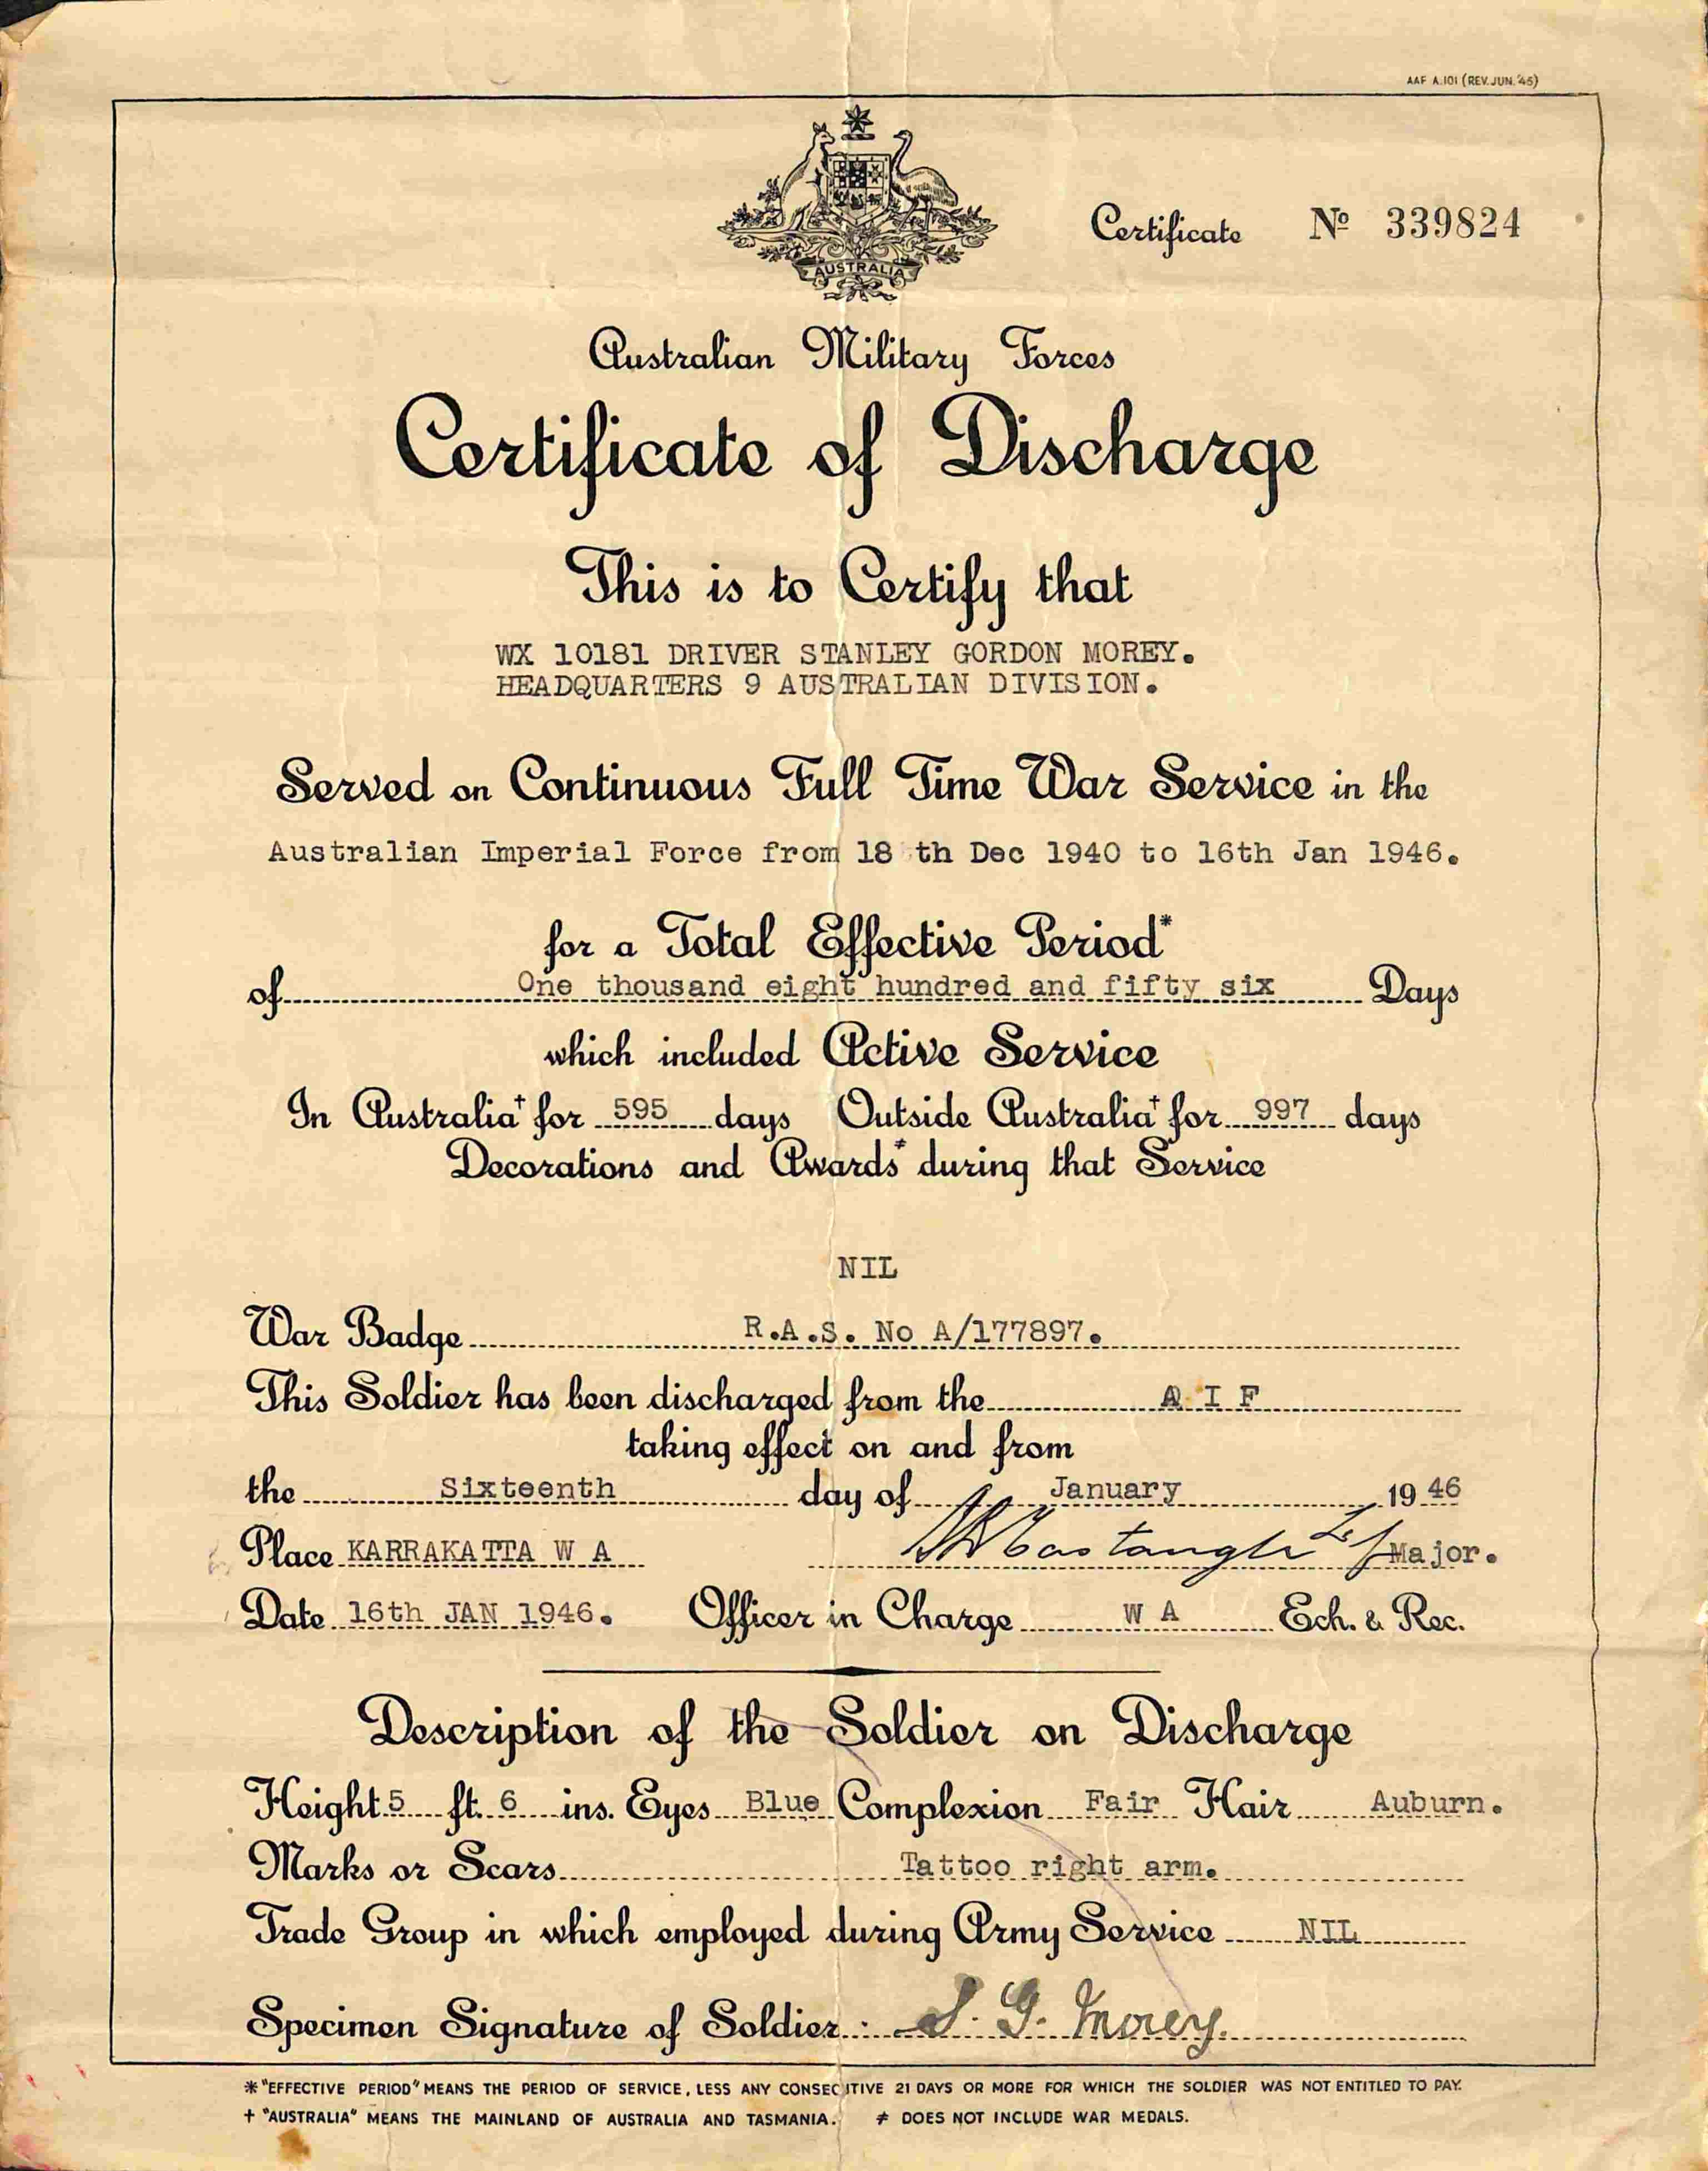 AAF A.101 (REV. JUN. '45)
AUSTRALIA
Certificate No 339824
Australian Military Forces
Certificate of Discharge
This is to Certify that
WX 10181 DRIVER STANLEY GORDON MOREY.
HEADQUARTERS 9 AUSTRALIAN DIVISION.
Served on Continuous Full Time War Service in the
Australian Imperial Force from 18 th Dec 1940 to 16th Jan 1946.
for a Total Effective Period*
of One thousand eight hundred and fifty six Days
which included Active Service
In Australia† for 595 days Outside Australia† for 997 days
Decorations and Awards≠ during that Service
NIL
War Badge R.A.S. No A/177897.
This Soldier has been discharged from the A I F
taking effect on and from
the Sixteenth day of January 1946
Place KARRAKATTA W A Major.
Date 16th JAN 1946. Officer in Charge W A Ech. & Rec.
Description of the Soldier on Discharge
Height 5 ft. 6 ins. Eyes Blue Complexion Fair Hair Auburn.
Marks or Scars Tattoo right arm.
Trade Group in which employed during Army Service NIL
Specimen Signature of Soldier: S. G. Morey.
* "EFFECTIVE PERIOD" MEANS THE PERIOD OF SERVICE, LESS ANY CONSECUTIVE 21 DAYS OR MORE FOR WHICH THE SOLDIER WAS NOT ENTITLED TO PAY.
† "AUSTRALIA" MEANS THE MAINLAND OF AUSTRALIA AND TASMANIA. ≠ DOES NOT INCLUDE WAR MEDALS.